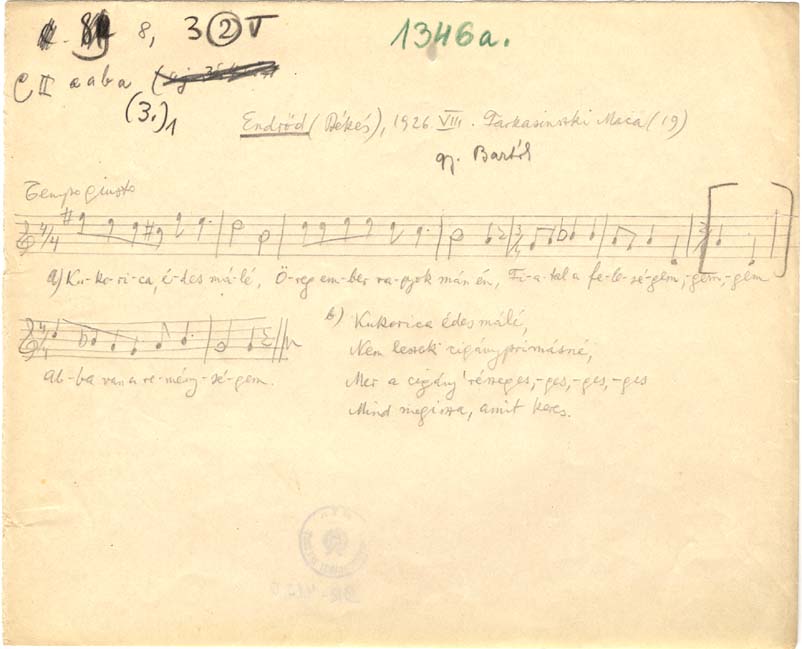 8, 3 2 V
1346a.
C II a a b a
(3.)1
Endrőd (Békés), 1926. VIII. Farkasinszki Maca (19)
gy. Bartók
Tempo giusto
4/4
a) Ku-ko-ri-ca, é-des má-lé, Ö-reg em-ber va-gyok mán én, Fi-a-tal a fe-le-sé-gem, -gem, -gem
4/4
Ab-ba van a re-mény-sé-gem.
b) Kukorica édes málé,
Nem leszek cigányprimásné,
Mer a cigány részeges, -ges, -ges, -ges
Mind megissza, amit keres.